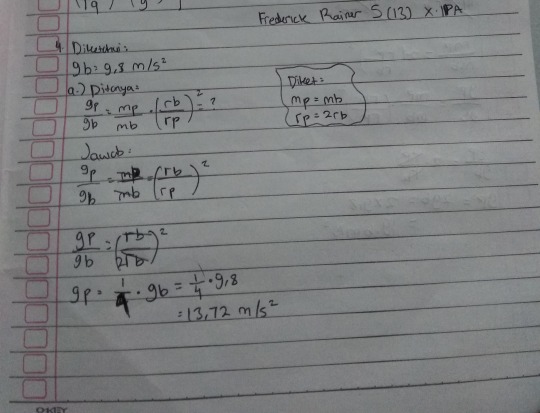 Frederick Rainer S (13) X.IPA
4. Diketahui:
gb = 9,8 m/s²
a.) Ditanya:
gp/gb = mp/mb · (rb/rp)² = ?
Diket:
mp = mb
rp = 2rb
Jawab:
gp/gb = mp/mb = (rb/rp)²
gp/gb = (rb/2rb)²
gp = 1/4 · gb = 1/4 · 9,8
= 13,72 m/s²